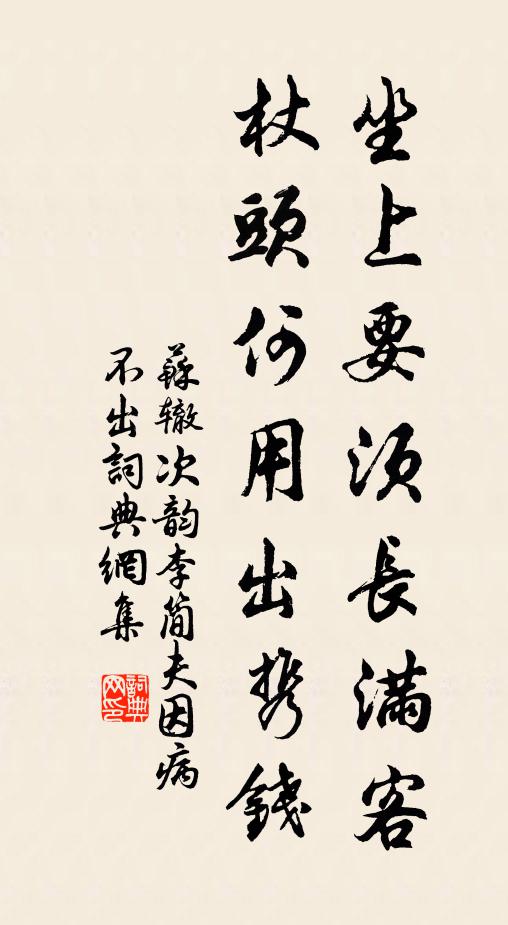 坐上要须長滿客
杖頭何用出携錢
蘇辙次韵李简夫因病
不出詞典網集
詞典
网印